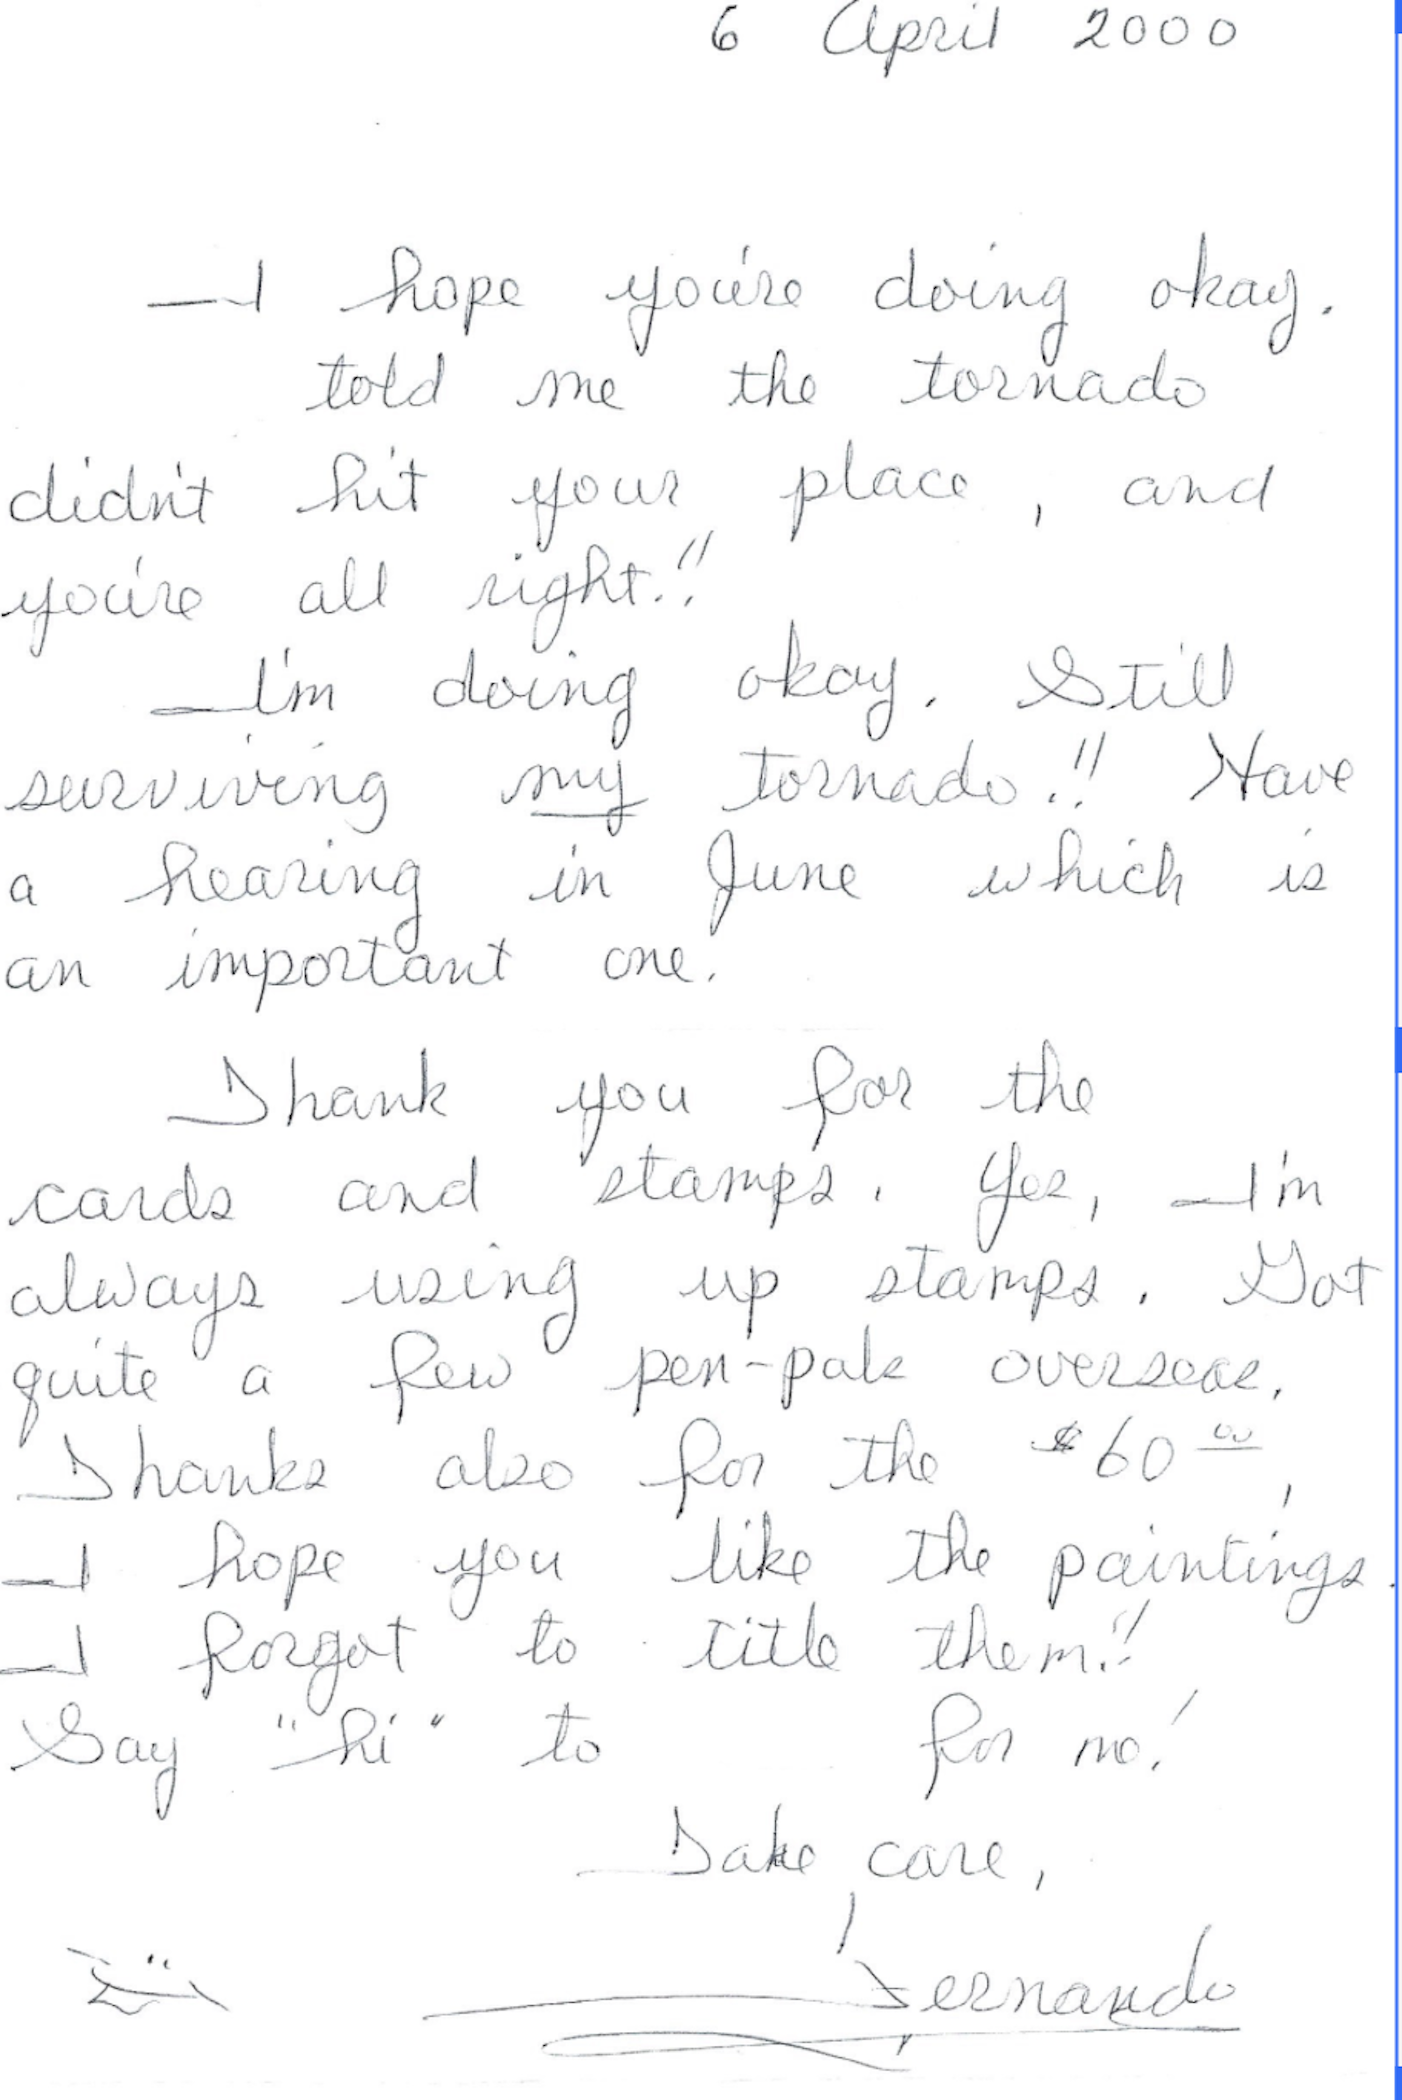 6 April 2000
I hope you're doing okay.
told me the tornado
didn't hit your place, and
you're all right!!
I'm doing okay. Still
surviving my tornado!! Have
a hearing in June which is
an important one.
Thank you for the
cards and stamps. Yes, I'm
always using up stamps. Got
quite a few pen-pals overseas.
Thanks also for the $60.00,
I hope you like the paintings.
I forgot to title them!!
Say "hi" to for me!
Take care,
Fernando